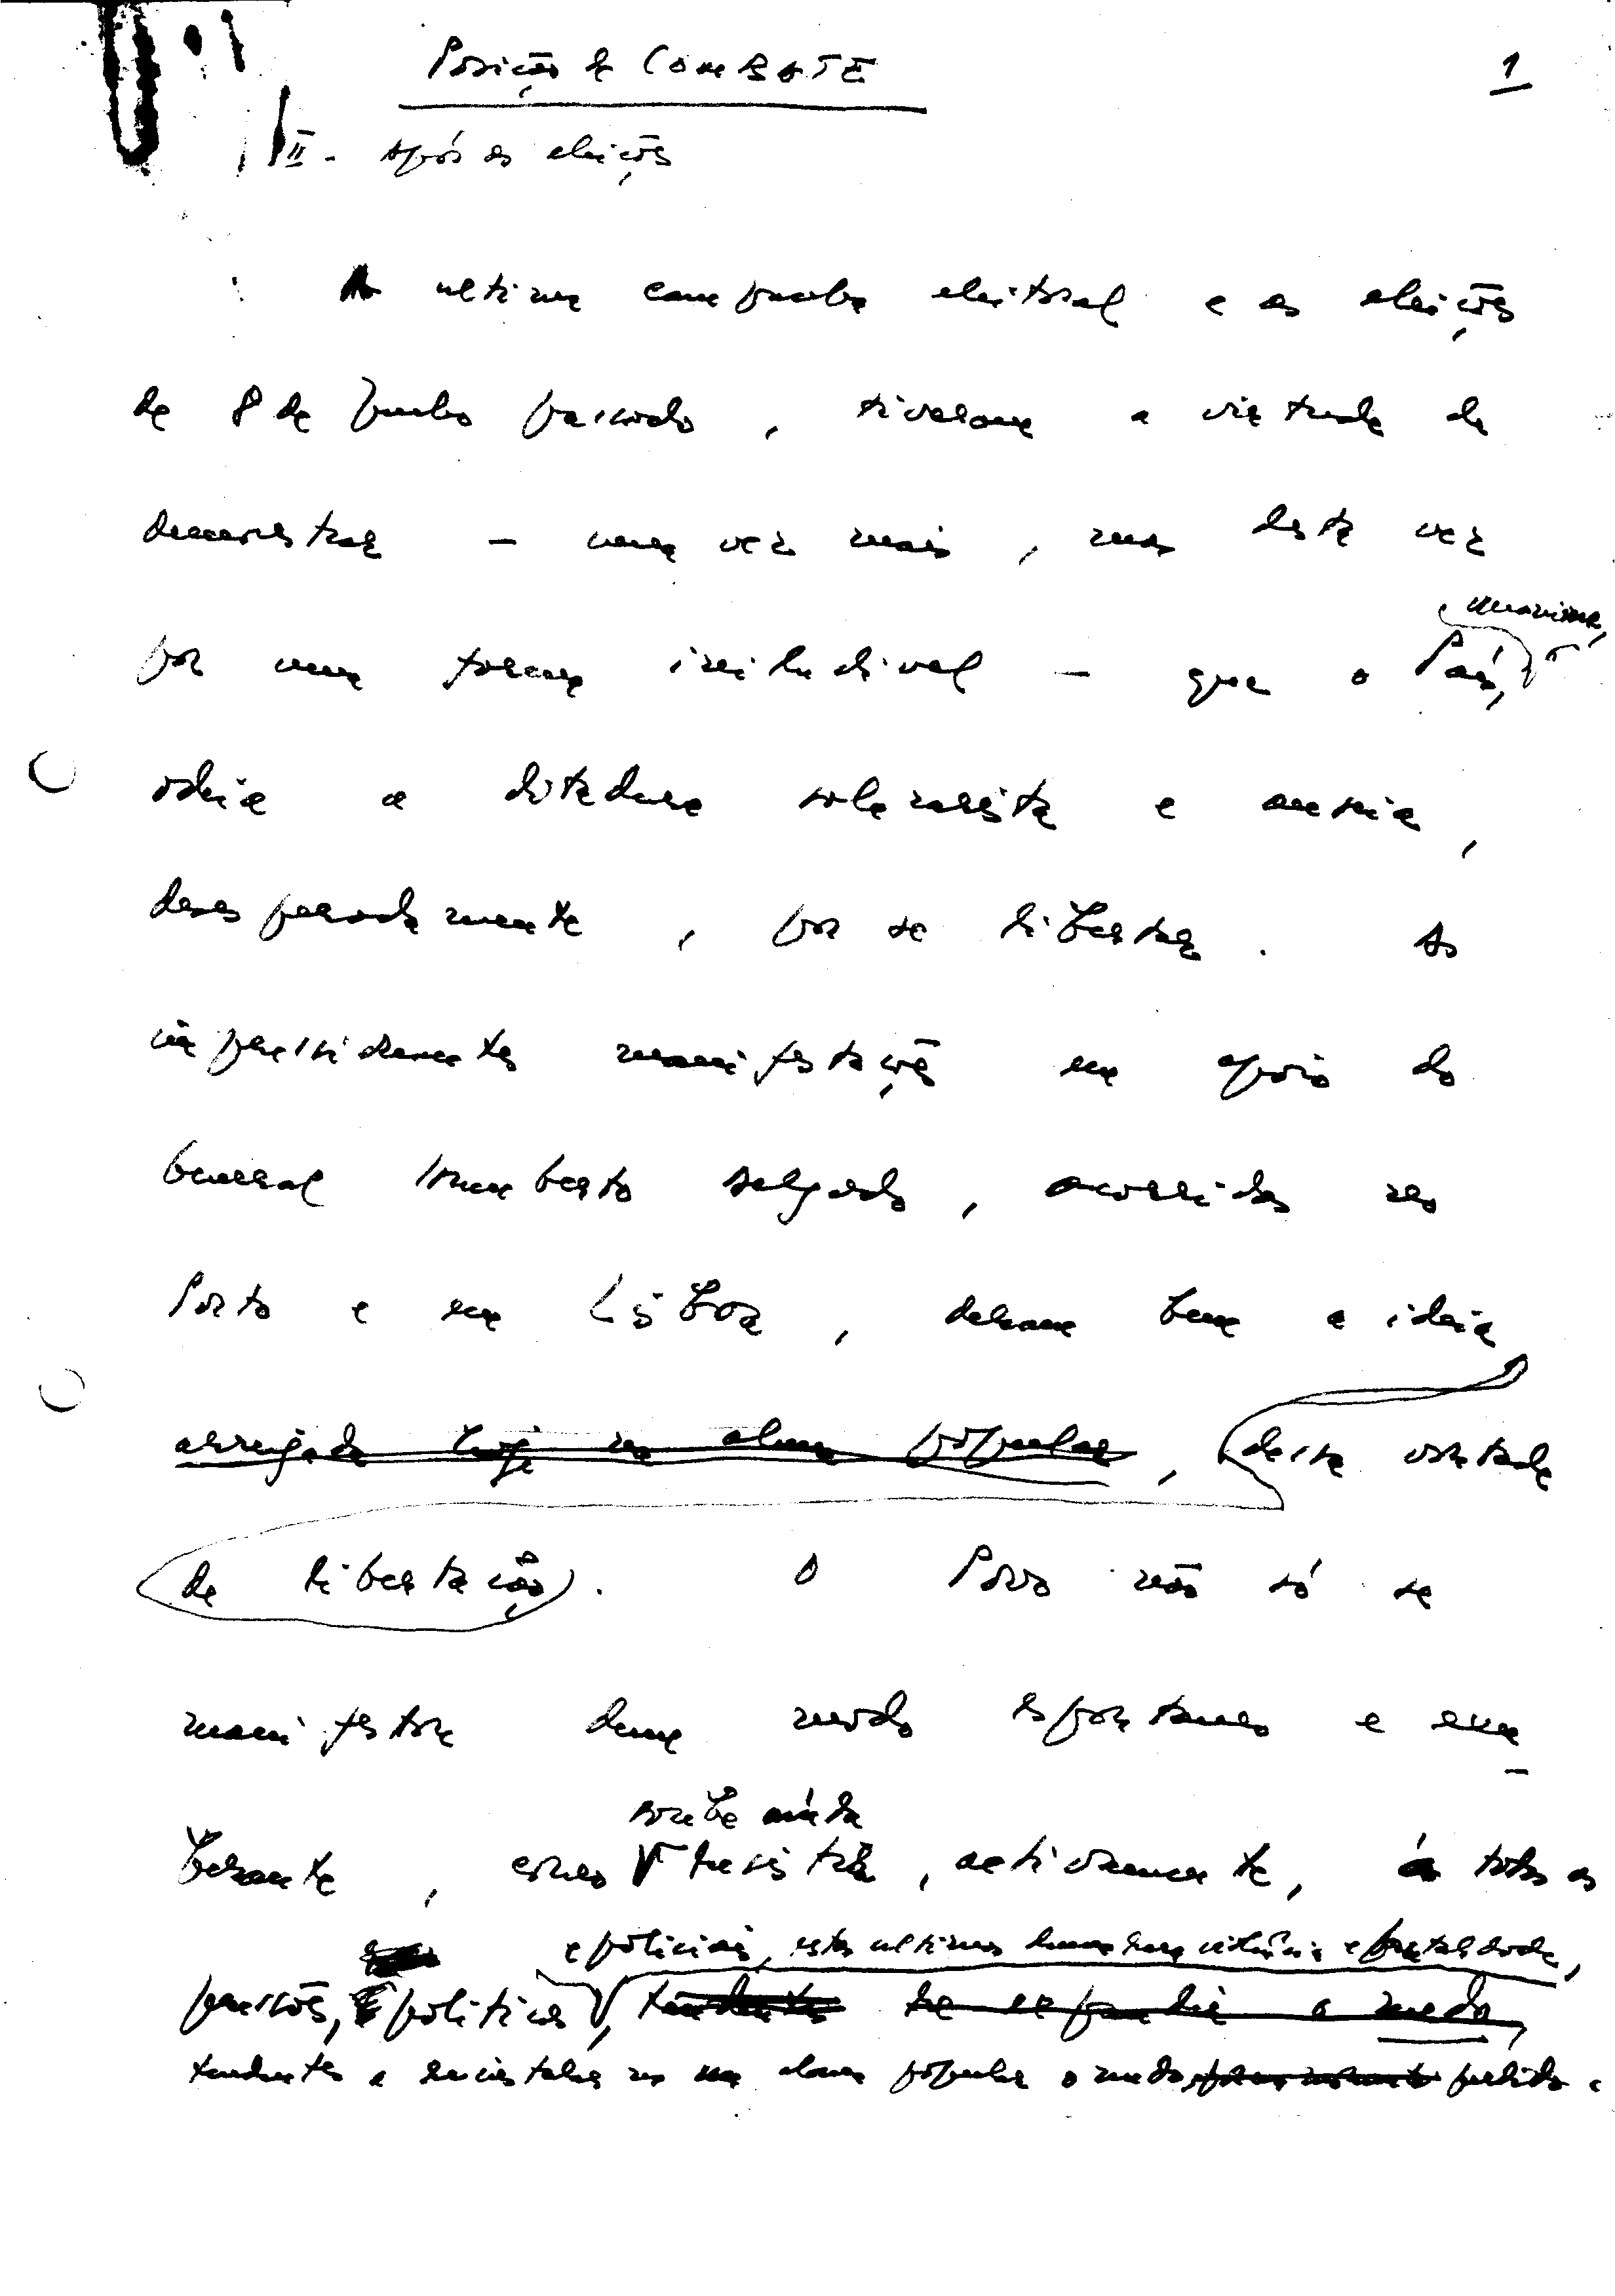 Posição de COMBATE
1
II - Após as eleições
A ultima campanha eleitoral e as eleições
de 8 de Junho passado, tiveram a virtude de
demonstrar - uma vez mais, mas desta vez
unanime,
por uma forma iniludivel - que o País,
odeia a ditadura salazarista e anseia,
desesperadamente, por se libertar. As
impressionantes manifestações em apoio do
General Humberto Delgado, ocorridas no
Porto e em Lisboa, deram bem a ideia
arreigada hoje na alma popular, dessa vontade
de libertação. O Povo não só se
manifestou dum modo espontaneo e exu-
soube ainda
berante, como resistir, activamente, a todas as
e policiais, estas ultimas duma rara violência e brutalidade,
pressões, politicas, tendentes a o medo,
tendentes a reinstalar na alma popular o medo perdido.